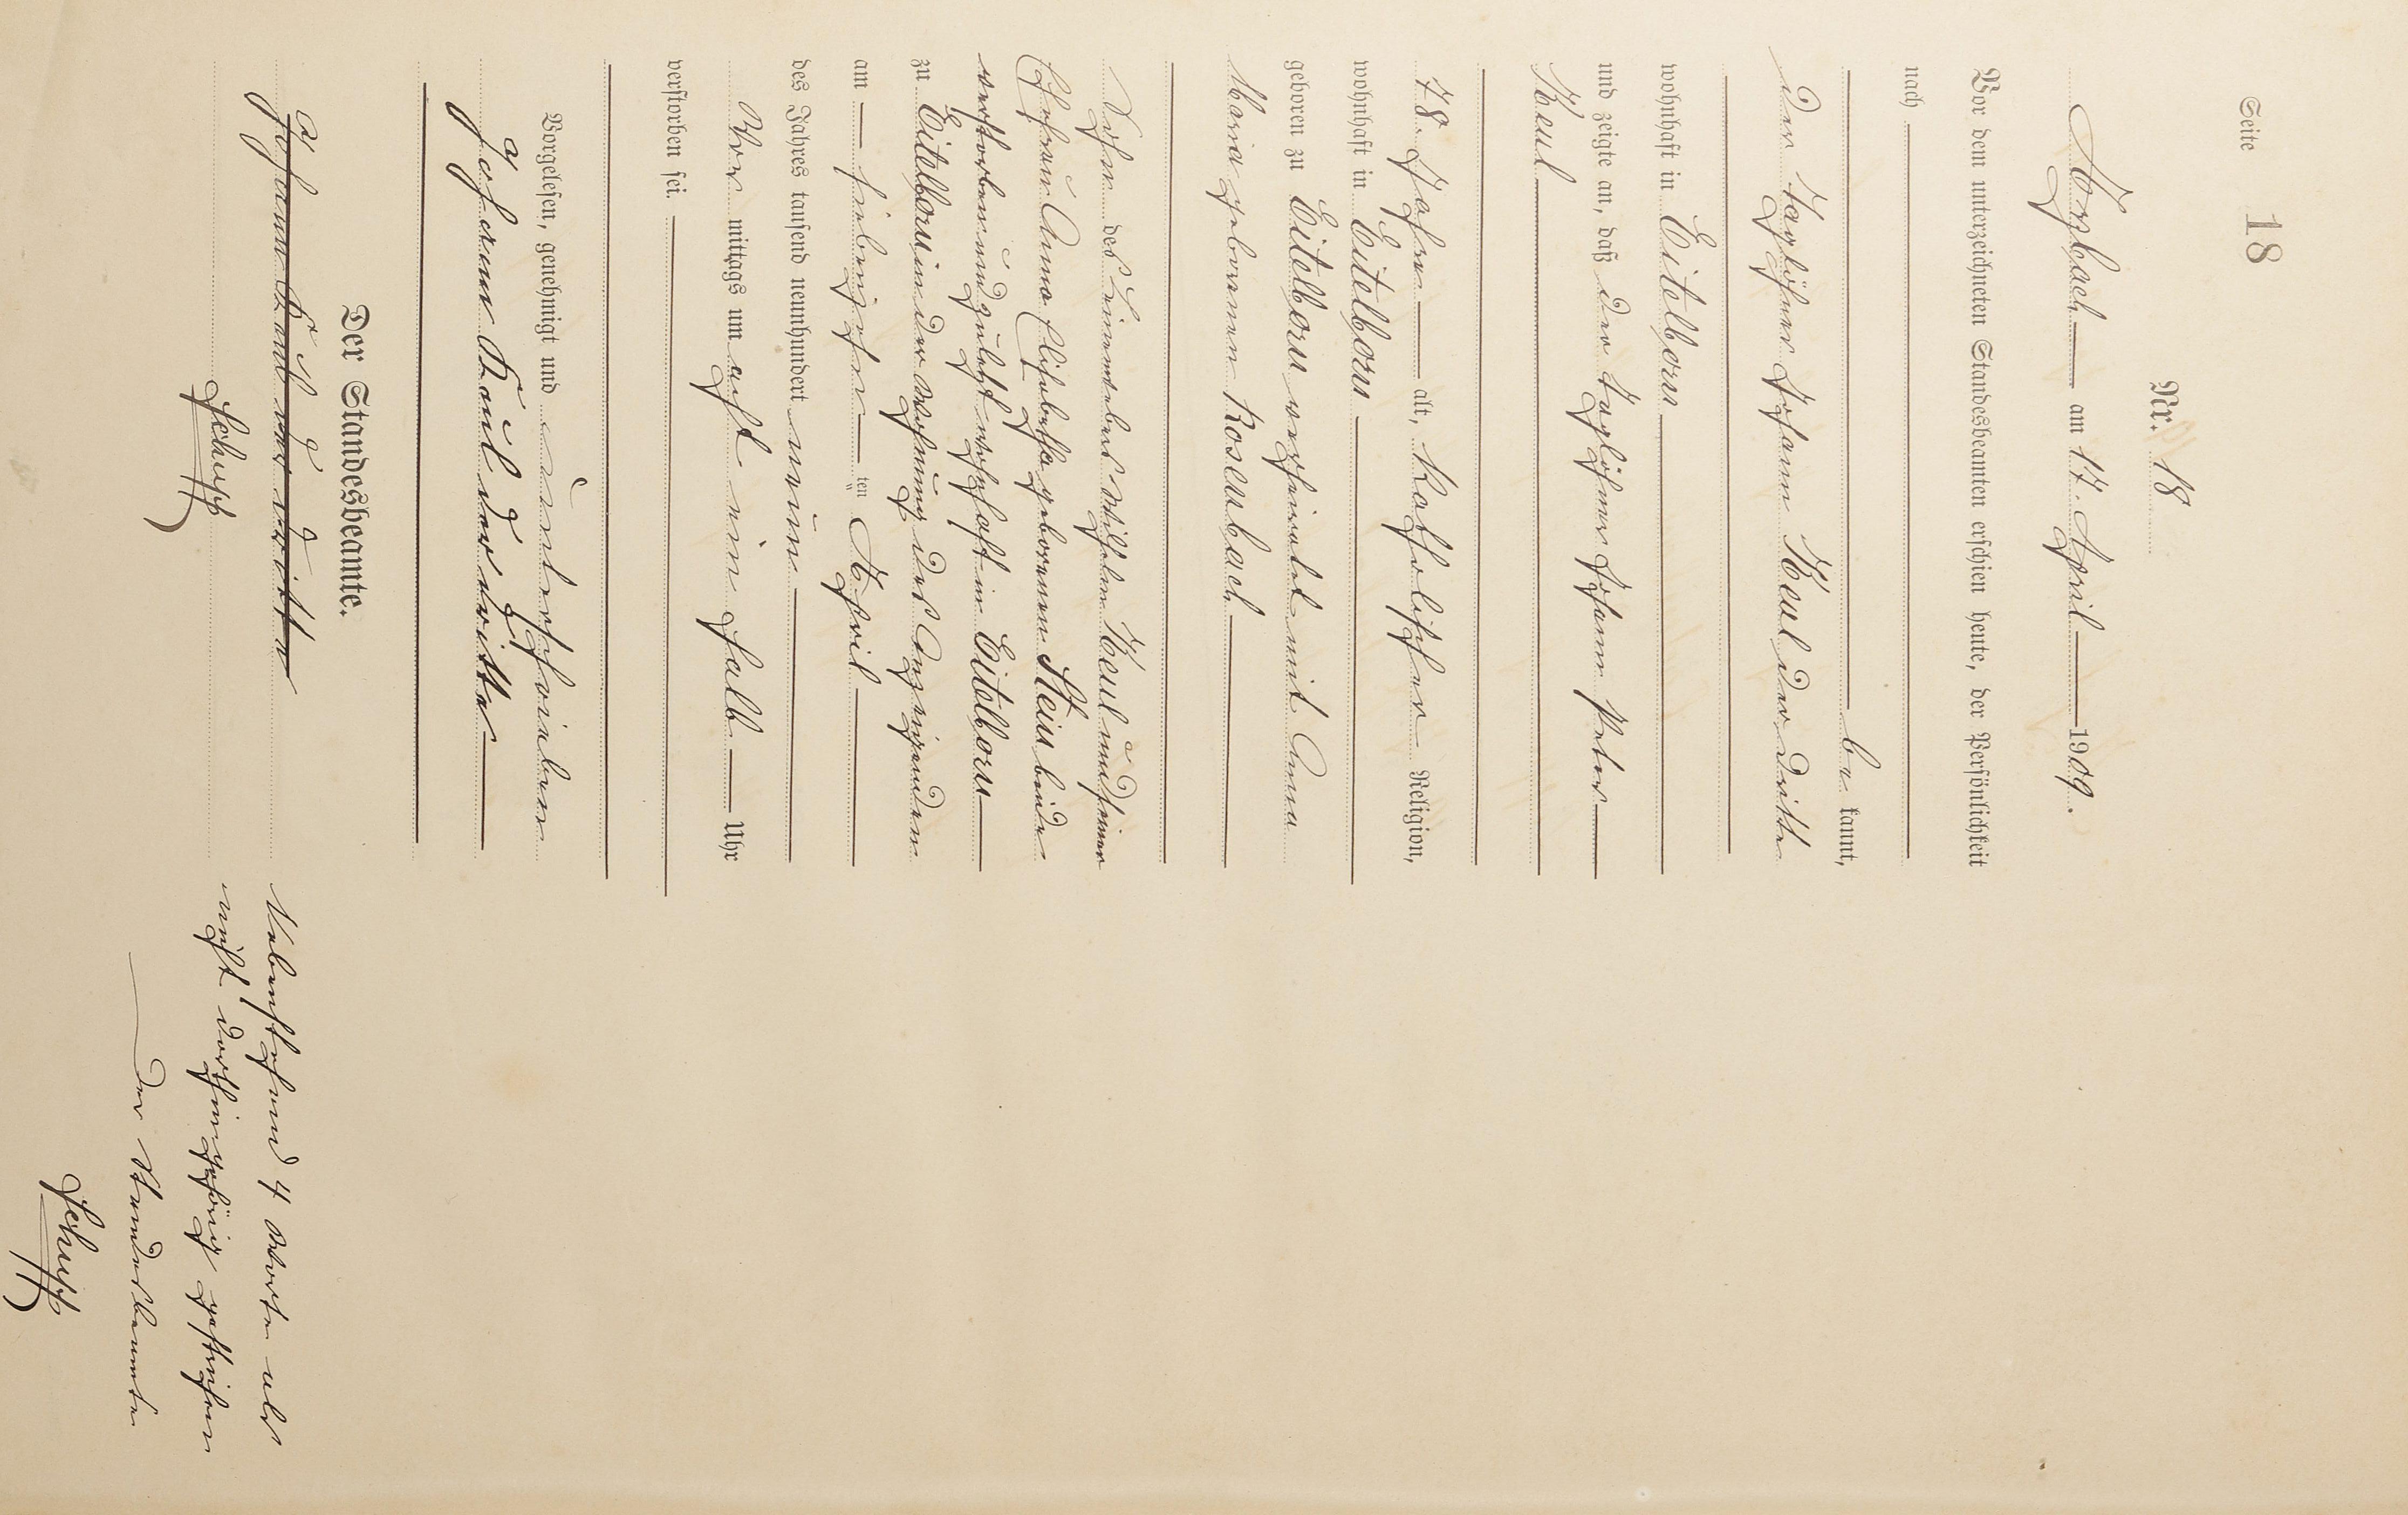 Seite 18
Nr. 18
Arzbach am 17. April 1909.
Vor dem unterzeichneten Standesbeamten erschien heute, der Persönlichkeit
nach
be kannt,
der Taglöhner Johann Keul der dritte
wohnhaft in Eitelborn
und zeigte an, daß der Taglöhner Johann Peter
Keul
78 Jahre alt, katholischer Religion,
wohnhaft in Eitelborn
geboren zu Eitelborn verheiratet mit Anna
Maria geborenen Rosenbach
Sohn des Leinwebers Wilhelm Keul und seiner
Ehefrau Anna Elisabetha geborenen Stein beide
verstorben und zuletzt wohnhaft in Eitelborn
zu Eitelborn in der Wohnung des Anzeigenden
am siebenzehnten April
des Jahres tausend neunhundert neun
Vor mittags um acht ein halb Uhr
verstorben sei.
Vorgelesen, genehmigt und unterschrieben
Johann Keul der dritte
Der Standesbeamte.
Johann Keul der dritte
Schupp
Nebenstehend 4 Worte als
nicht dorthin gehörig gestrichen
Der Standesbeamte
Schupp